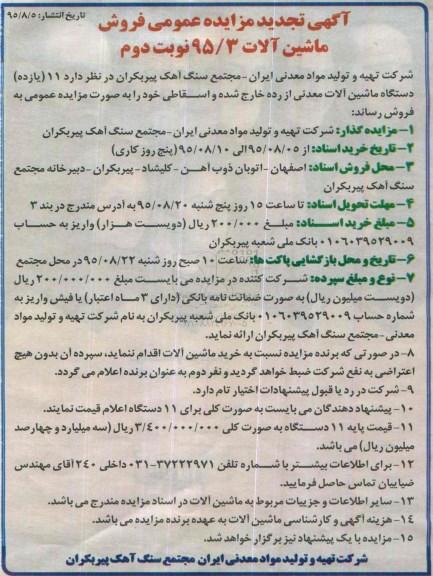 تاریخ انتشار: ۹۵/۸/۵
آگهی تجدید مزایده عمومی فروش
ماشین آلات ۹۵/۳ نوبت دوم
شرکت تهیه و تولید مواد معدنی ایران -مجتمع سنگ آهک پیربکران در نظر دارد ۱۱ (یازده)
دستگاه ماشین آلات معدنی از رده خارج شده و اسقاطی خود را به صورت مزایده عمومی به
فروش رساند:
۱- مزایده گذار: شرکت تهیه و تولید مواد معدنی ایران -مجتمع سنگ آهک پیربکران
۲- تاریخ خرید اسناد: از ۹۵/۰۸/۰۵ الی ۹۵/۰۸/۱۰ (پنج روز کاری)
۳- محل فروش اسناد: اصفهان -اتوبان ذوب آهن - کلیشاد - پیربکران - دبیرخانه مجتمع
سنگ آهک پیربکران
۴- مهلت تحویل اسناد: تا ساعت ۱۵ روز پنج شنبه ۹۵/۰۸/۲۰ به آدرس مندرج در بند ۳
۵- مبلغ خرید اسناد: مبلغ ۲۰۰/۰۰۰ ریال (دویست هزار) واریز به حساب
۰۱۰۶۰۳۹۵۲۹۰۰۹ بانک ملی شعبه پیربکران
۶- تاریخ و محل بازگشایی پاکت ها: ساعت ۱۰ صبح روز شنبه ۹۵/۰۸/۲۲ در محل مجتمع
۷- نوع و مبلغ سپرده: شرکت کننده در مزایده می بایست مبلغ ۲۰۰/۰۰۰/۰۰۰ ریال
(دویست میلیون ریال) به صورت ضمانت نامه بانکی (دارای ۳ ماه اعتبار) یا فیش واریز به
شماره حساب ۰۱۰۶۰۳۹۵۲۹۰۰۹ بانک ملی شعبه پیربکران به نام شرکت تهیه و تولید مواد
معدنی-مجتمع سنگ آهک پیربکران ارائه نماید.
۸- در صورتی که برنده مزایده نسبت به خرید ماشین آلات اقدام ننماید، سپرده آن بدون هیچ
اعتراضی به نفع شرکت ضبط خواهد گردید و نفر دوم به عنوان برنده اعلام می گردد.
۹- شرکت در رد یا قبول پیشنهادات اختیار تام دارد.
۱۰- پیشنهاد دهندگان می بایست به صورت کلی برای ۱۱ دستگاه اعلام قیمت نمایند.
۱۱- قیمت پایه ۱۱ دستگاه به صورت کلی ۳/۴۰۰/۰۰۰/۰۰۰ ریال (سه میلیارد و چهارصد
میلیون ریال) می باشد.
۱۲- برای اطلاعات بیشتر با شماره تلفن ۳۷۲۲۲۹۷۱-۰۳۱ داخلی ۲۴۰ آقای مهندس
ضیاییان تماس حاصل فرمایید.
۱۳- سایر اطلاعات و جزییات مربوط به ماشین آلات در اسناد مزایده مندرج می باشد.
۱۴- هزینه آگهی و کارشناسی ماشین آلات به عهده برنده مزایده می باشد.
۱۵- مزایده با یک پیشنهاد نیز برگزار خواهد شد.
شرکت تهیه و تولید مواد معدنی ایران مجتمع سنگ آهک پیربکران